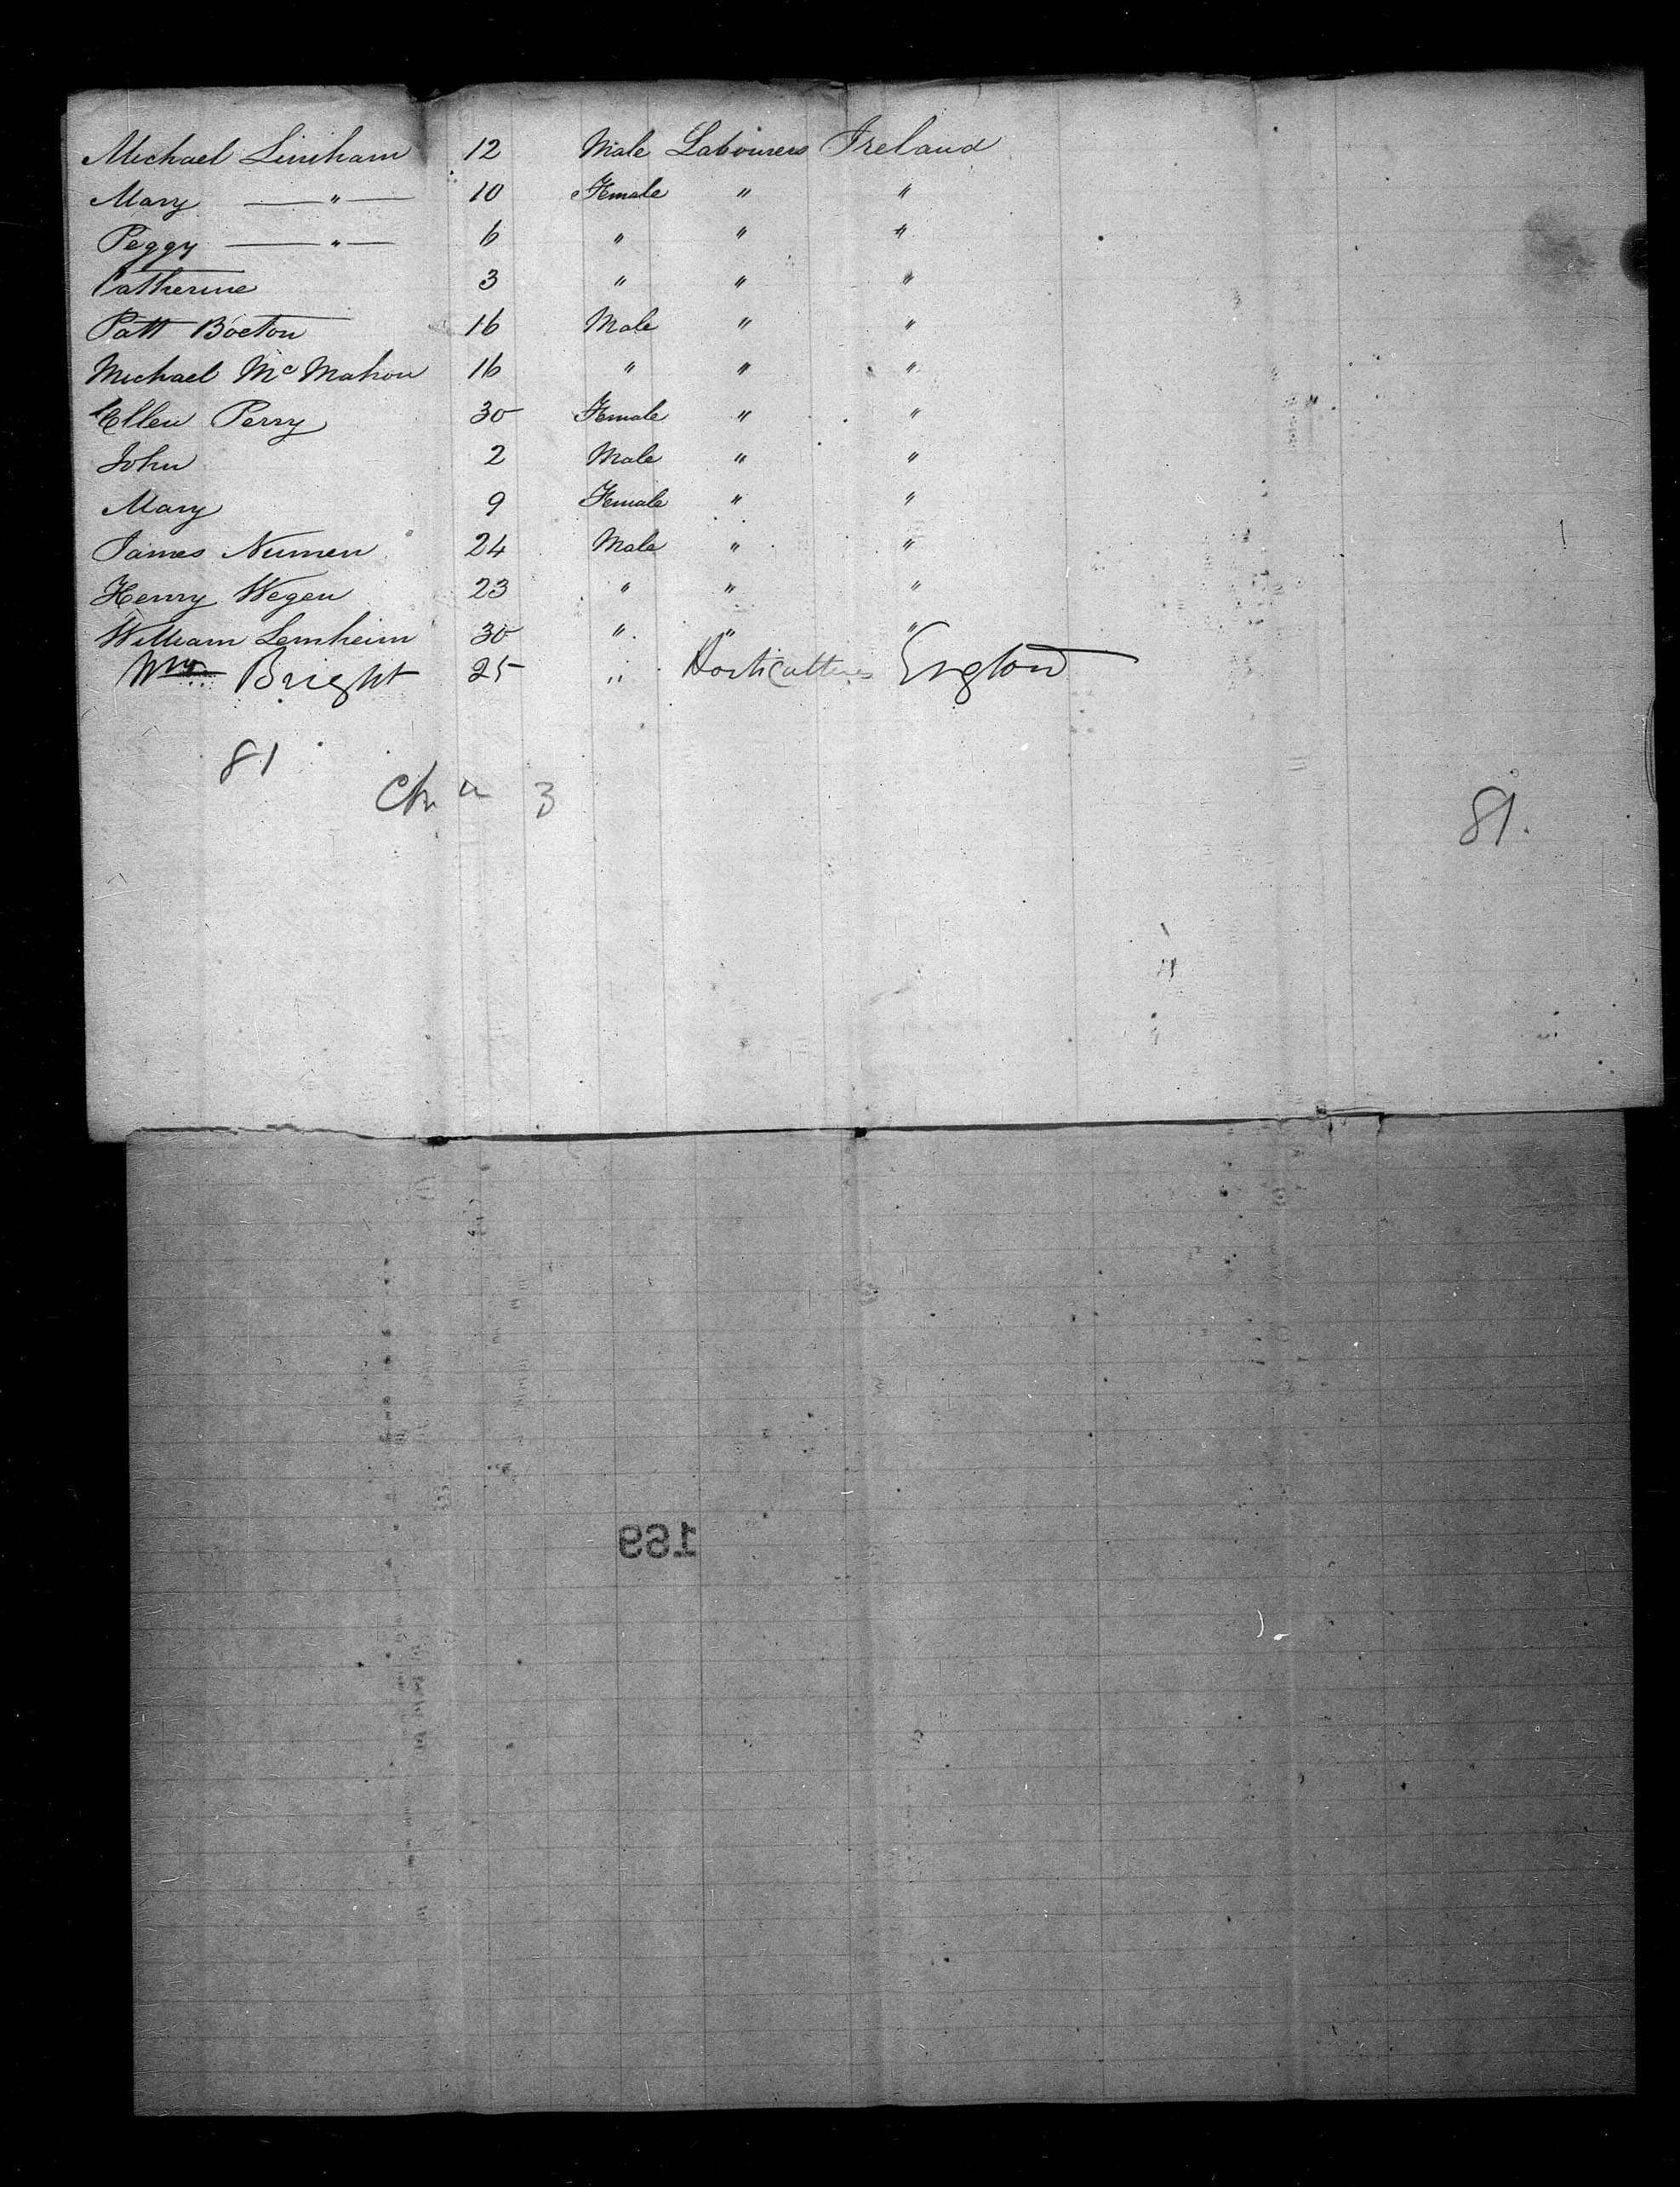 Michael Liniham 12 Male Labourers Ireland
Mary — " — 10 Female " "
Peggy — " — 6 " " "
Catherine 3 " " "
Patt Boeton 16 Male " "
Michael Mc Mahon 16 " " "
Ellen Perry 30 Female " "
John 2 Male " "
Mary 9 Female " "
James Numen 24 Male " "
Henry Wegen 23 " " "
William Lemheim 30 " " "
Wm Bright 25 " England
81
3
81.
169